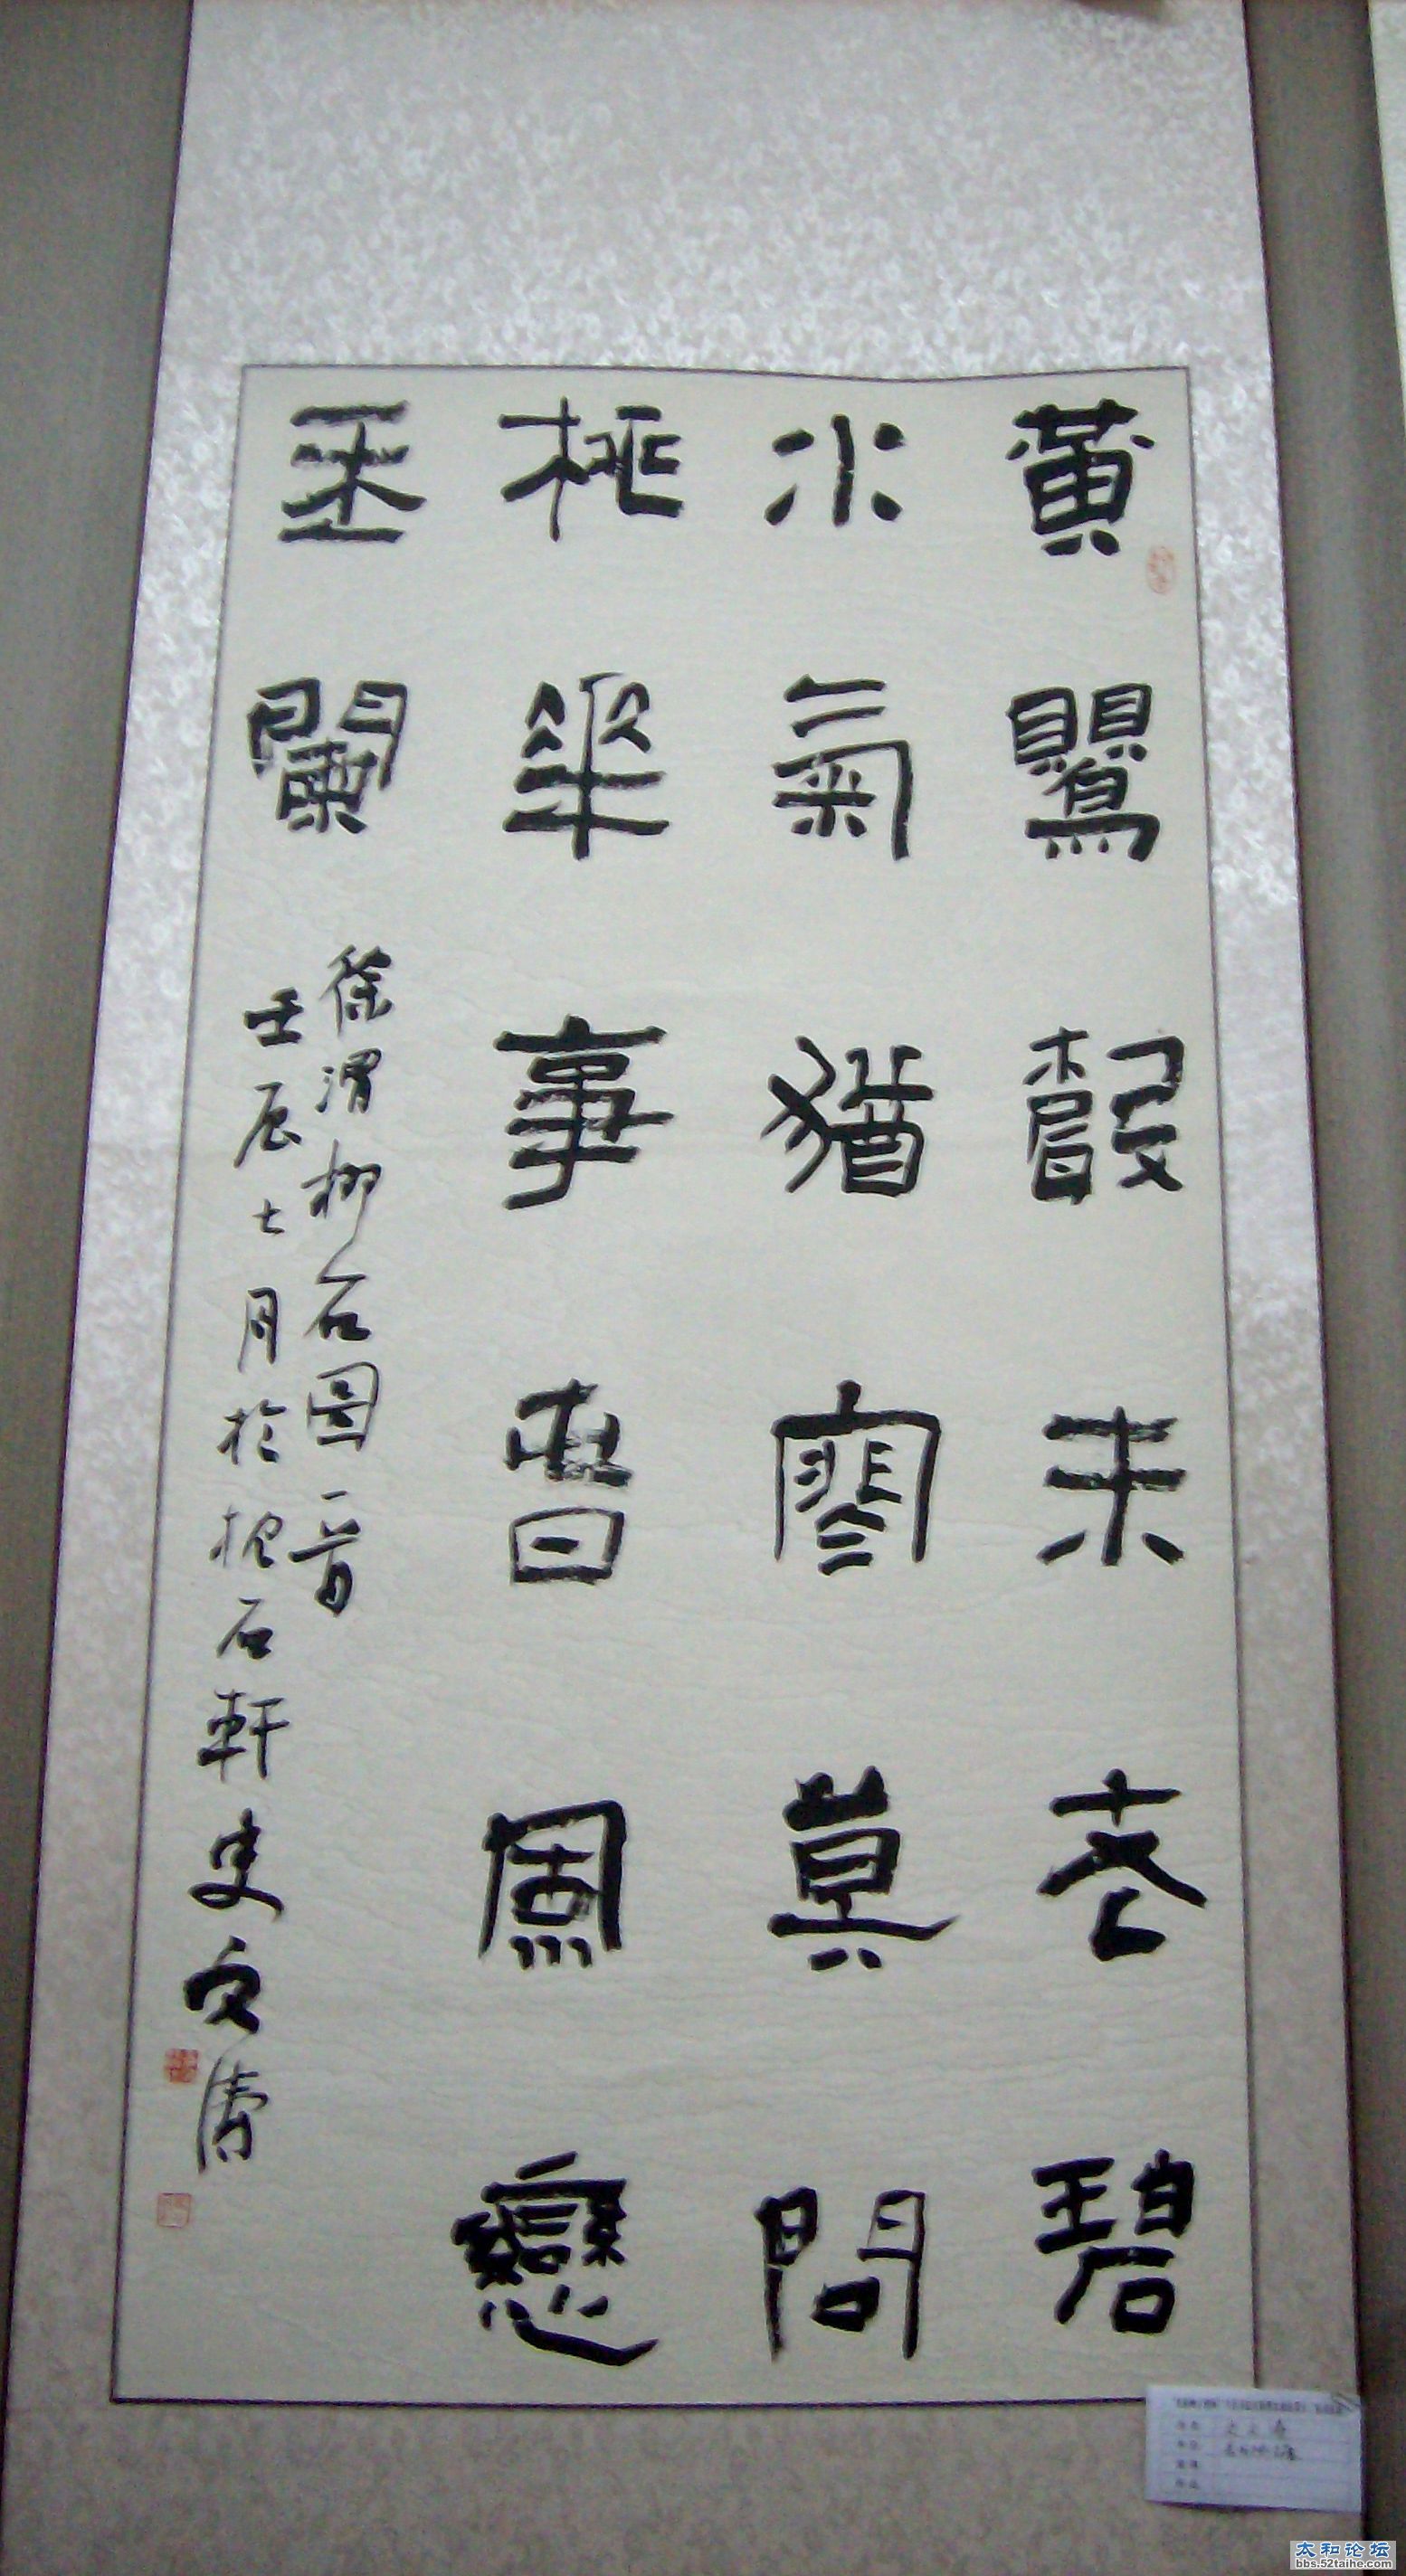 黄鸎㲉未老碧
水氣猶寥莫問
桃華事春風戀
玉闌
徐渭柳石圖一首
壬辰七月於枕石軒史文濤
太和论坛
bbs.52taihe.com